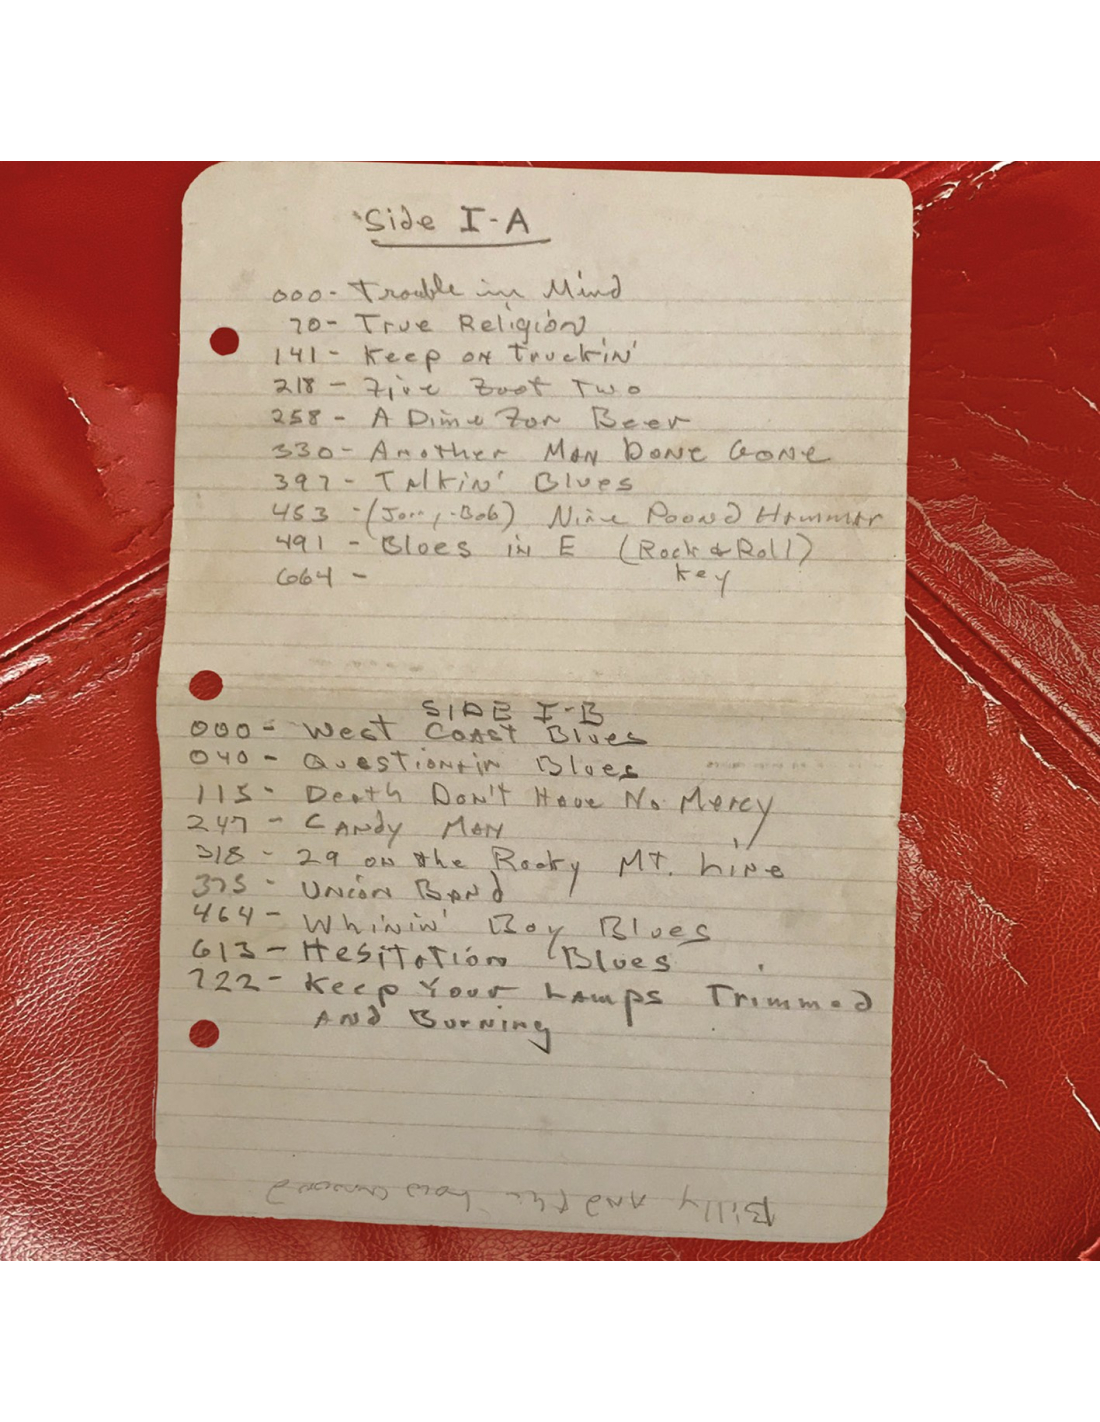 Side I-A
000- Trouble in Mind
70- True Religion
141- Keep on Truckin'
218- Five Foot Two
258- A Dime For Beer
330- Another Man Done Gone
397- Talkin' Blues
453 -(Jorm, -Bob) Nine Pound Hammer
491 - Blues in E (Rock & Roll)
Key
664 -
SIDE I-B
000- West Coast Blues
040- Questionin Blues
115- Death Don't Have No Mercy
247- Candy Man
318- 29 on the Rocky MT. Line
375- Union Band
464- Whinin' Boy Blues
613- Hesitation Blues
722- Keep Your Lamps Trimmed
And Burning
Billy And